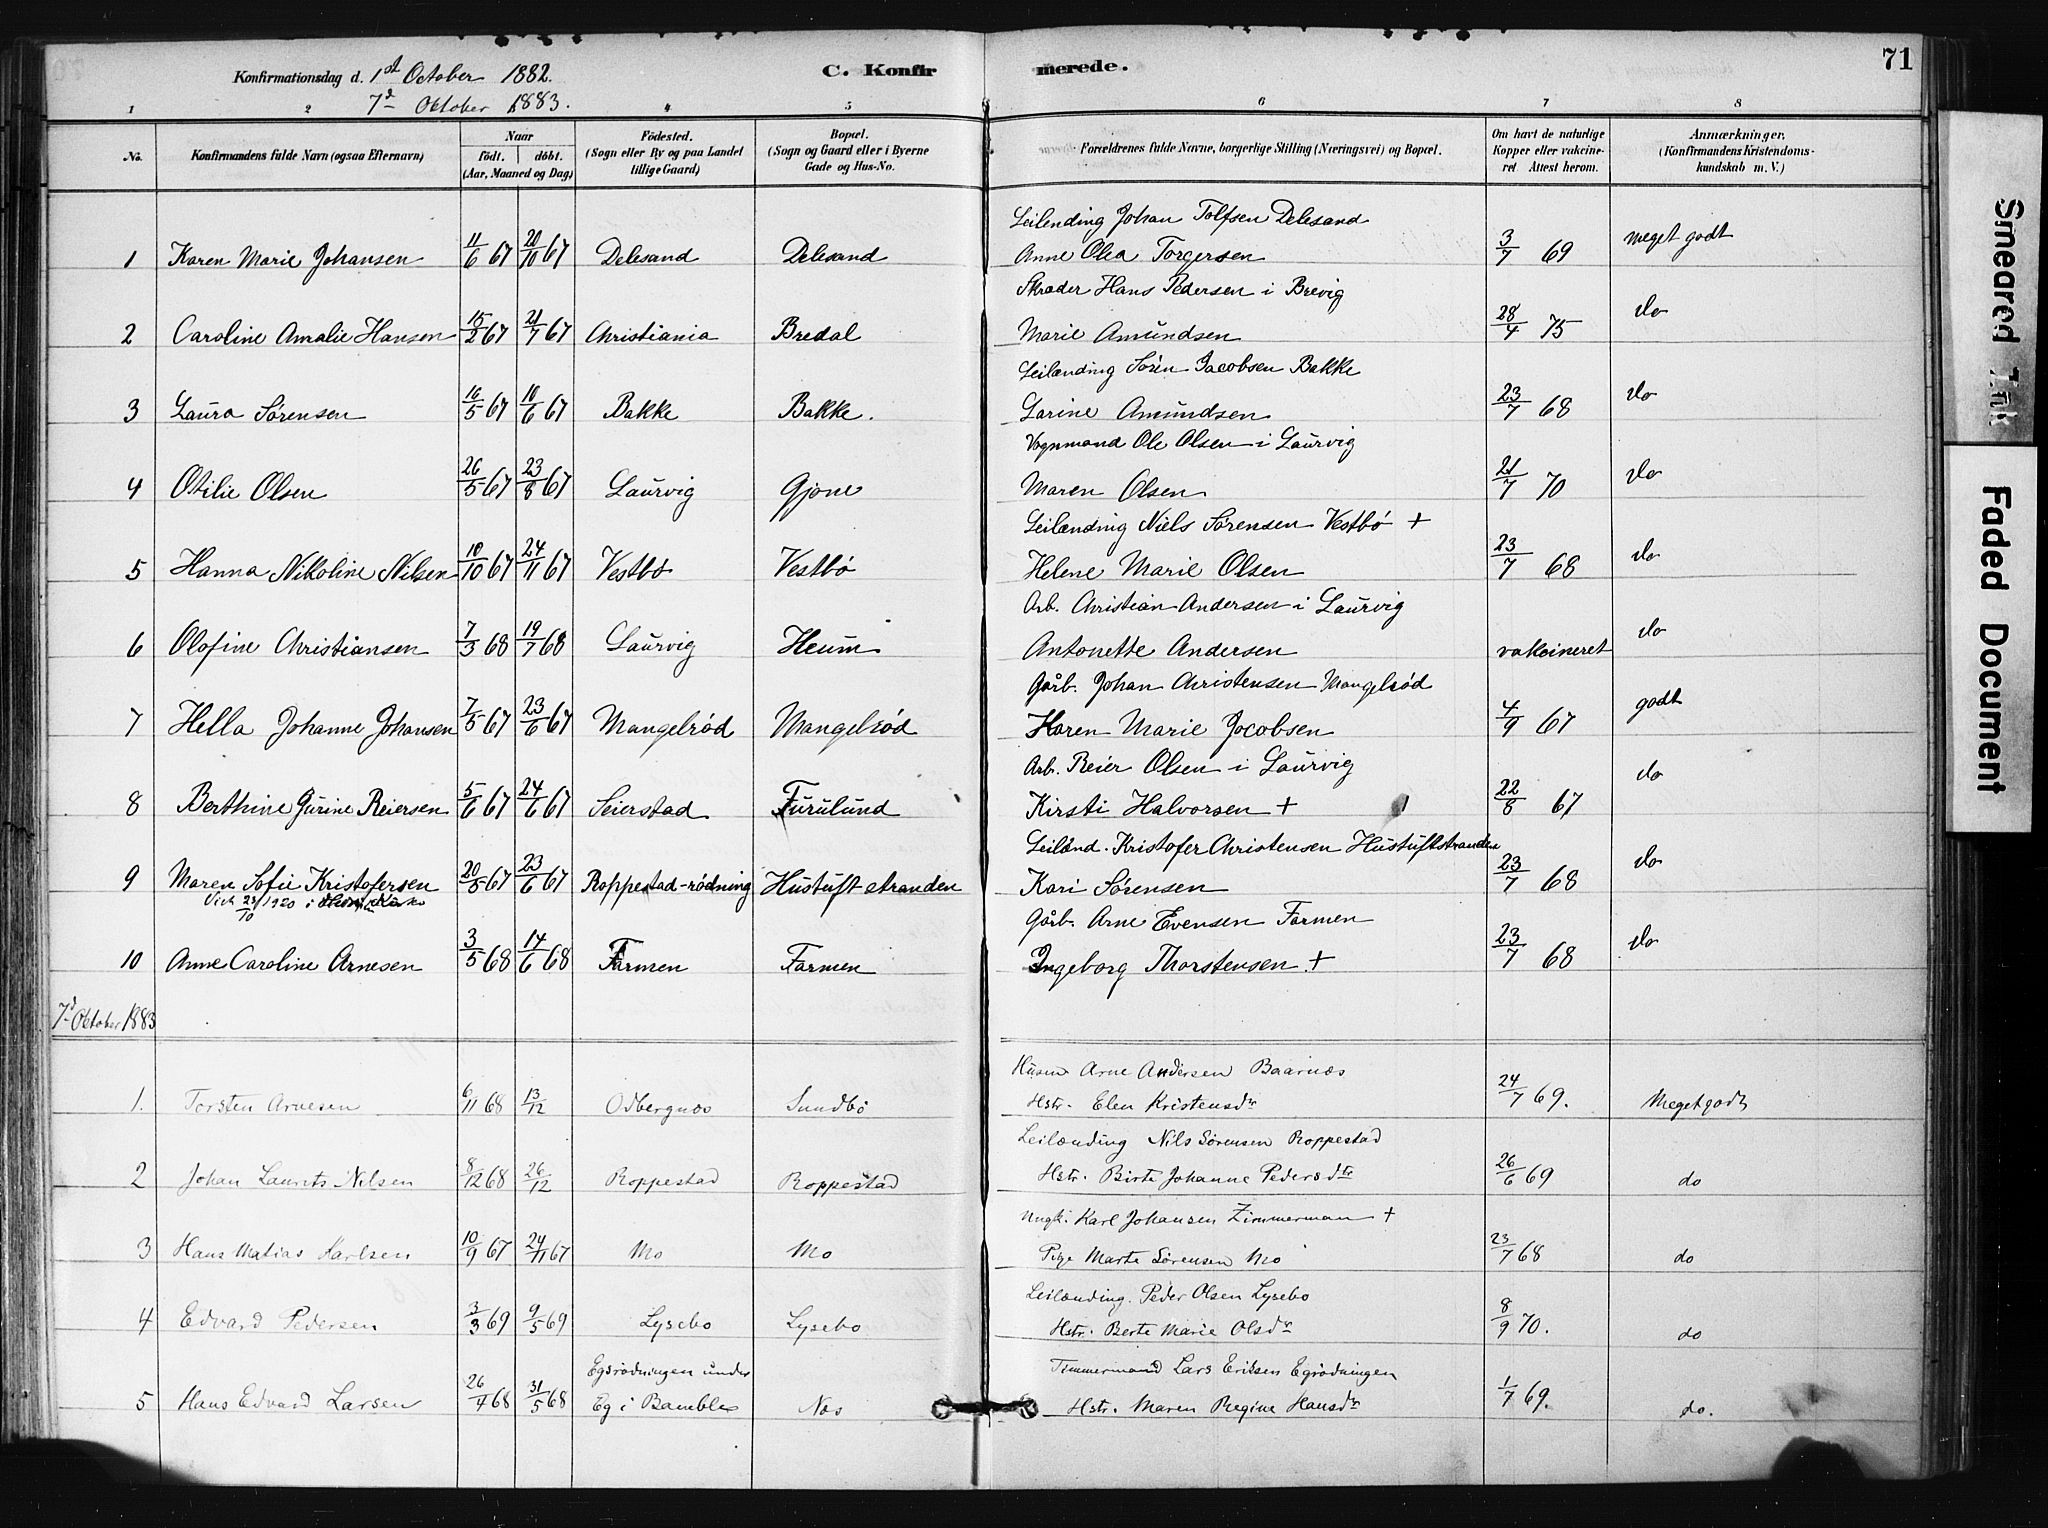 71
Konfirmationsdag d. 1st October 1882.
7d October 1883.
C. Konfirmerede.
1 2 4 5 6 7 8
No. Konfirmandens fulde Navn (ogsaa Efternavn) Naar födt. döbt. (Aar, Maaned og Dag) Födested. (Sogn eller By og paa Landet tillige Gaard) Bopæl. (Sogn og Gaard eller i Byerne Gade og Hus-No. Forældrenes fulde Navne, borgerlige Stilling (Næringsvei) og Bopæl. Om havt de naturlige Kopper eller vakcineret Attest herom. Anmærkninger. (Konfirmandens Kristendomskundskab m. V.)
Leilending Johan Tolfsen Delesand
1 Karen Marie Johansen 11/6 67 20/10 67 Delesand Delesand Anne Olea Torgersen 3/7 69 meget godt
Skræder Hans Pedersen i Brevig
2 Caroline Amalie Hansen 15/2 67 21/7 67 Christiania Bredal Marie Amundsen 28/4 75 do
Leilænding Sören Jacobsen Bakke
3 Laura Sörensen 16/5 67 10/6 67 Bakke Bakke. Larine Amundsen 23/7 68 do
Vognmand Ole Olsen i Laurvig
4 Otilie Olsen 26/5 67 23/8 67 Laurvig Gjone Maren Olsen 21/7 70 do
Leilænding Niels Sörensen Vestbö +
5 Hanna Nikoline Nilsen 10/10 67 24/11 67 Vestbö Vestbö Helene Marie Olsen 23/7 68 do
Arb. Christian Andersen i Laurvig
6 Olofine Christiansen 7/3 68 19/7 68 Laurvig Heum Antonette Andersen vakcineret do
Gårb. Johan Christensen Mangelröd
7 Hella Johanne Johansen 7/5 67 23/6 67 Mangelröd Mangelröd Karen Marie Jacobsen 4/9 67 godt
Arb. Reier Olsen i Laurvig
8 Berthine Gurine Reiersen 5/6 67 24/6 67 Seierstad Furulund Kirsti Halvorsen + 22/8 67 do
Leilænd. Kristofer Christensen Hustuftstranden
9 Maren Sofie Kristofersen 20/5 67 23/6 67 Roppestad-rödning Hustuftstranden Kari Sörensen 23/7 68 do
23/10 1920 i
Gårb. Arne Evensen Farmen
10 Anne Caroline Arnesen 3/5 68 14/6 68 Farmen Farmen Ingeborg Thorstensen + 23/7 68 do
7d October 1883
Husm Arne Andersen Baarnæs
1. Torsten Arnesen 6/11 68 13/12 Odbergnæs Sundbö Hstr. Elen Kristensdr 24/7 69. Meget godt
Leilænding Nils Sörensen Roppestad
2 Johan Laurits Nilsen 8/12 68 26/12 Roppestad Roppestad Hstr. Birte Johanne Pedersdtr 26/6 69 do
Ungk. Karl Johansen Zimmerman +
3 Hans Matias Karlsen 10/9 67 24/11 67 Mo Mo Pige Marte Sörensen Mo 23/7 68 do
Leilænding. Peder Olsen Lysebo
4 Edvard Pedersen 3/3 69 9/5 69 Lysebo Lysebo Hstr. Berte Marie Olsdr 8/9 70. do
Egsrödningen under Timmermand Lars Eriksen Egrödningen
5 Hans Edvard Larsen 26/4 68 31/5 68 Eg i Bamble Næs Hstr. Maren Regine Hansdr 1/7 69. do.
Smeared Ink
Faded Document